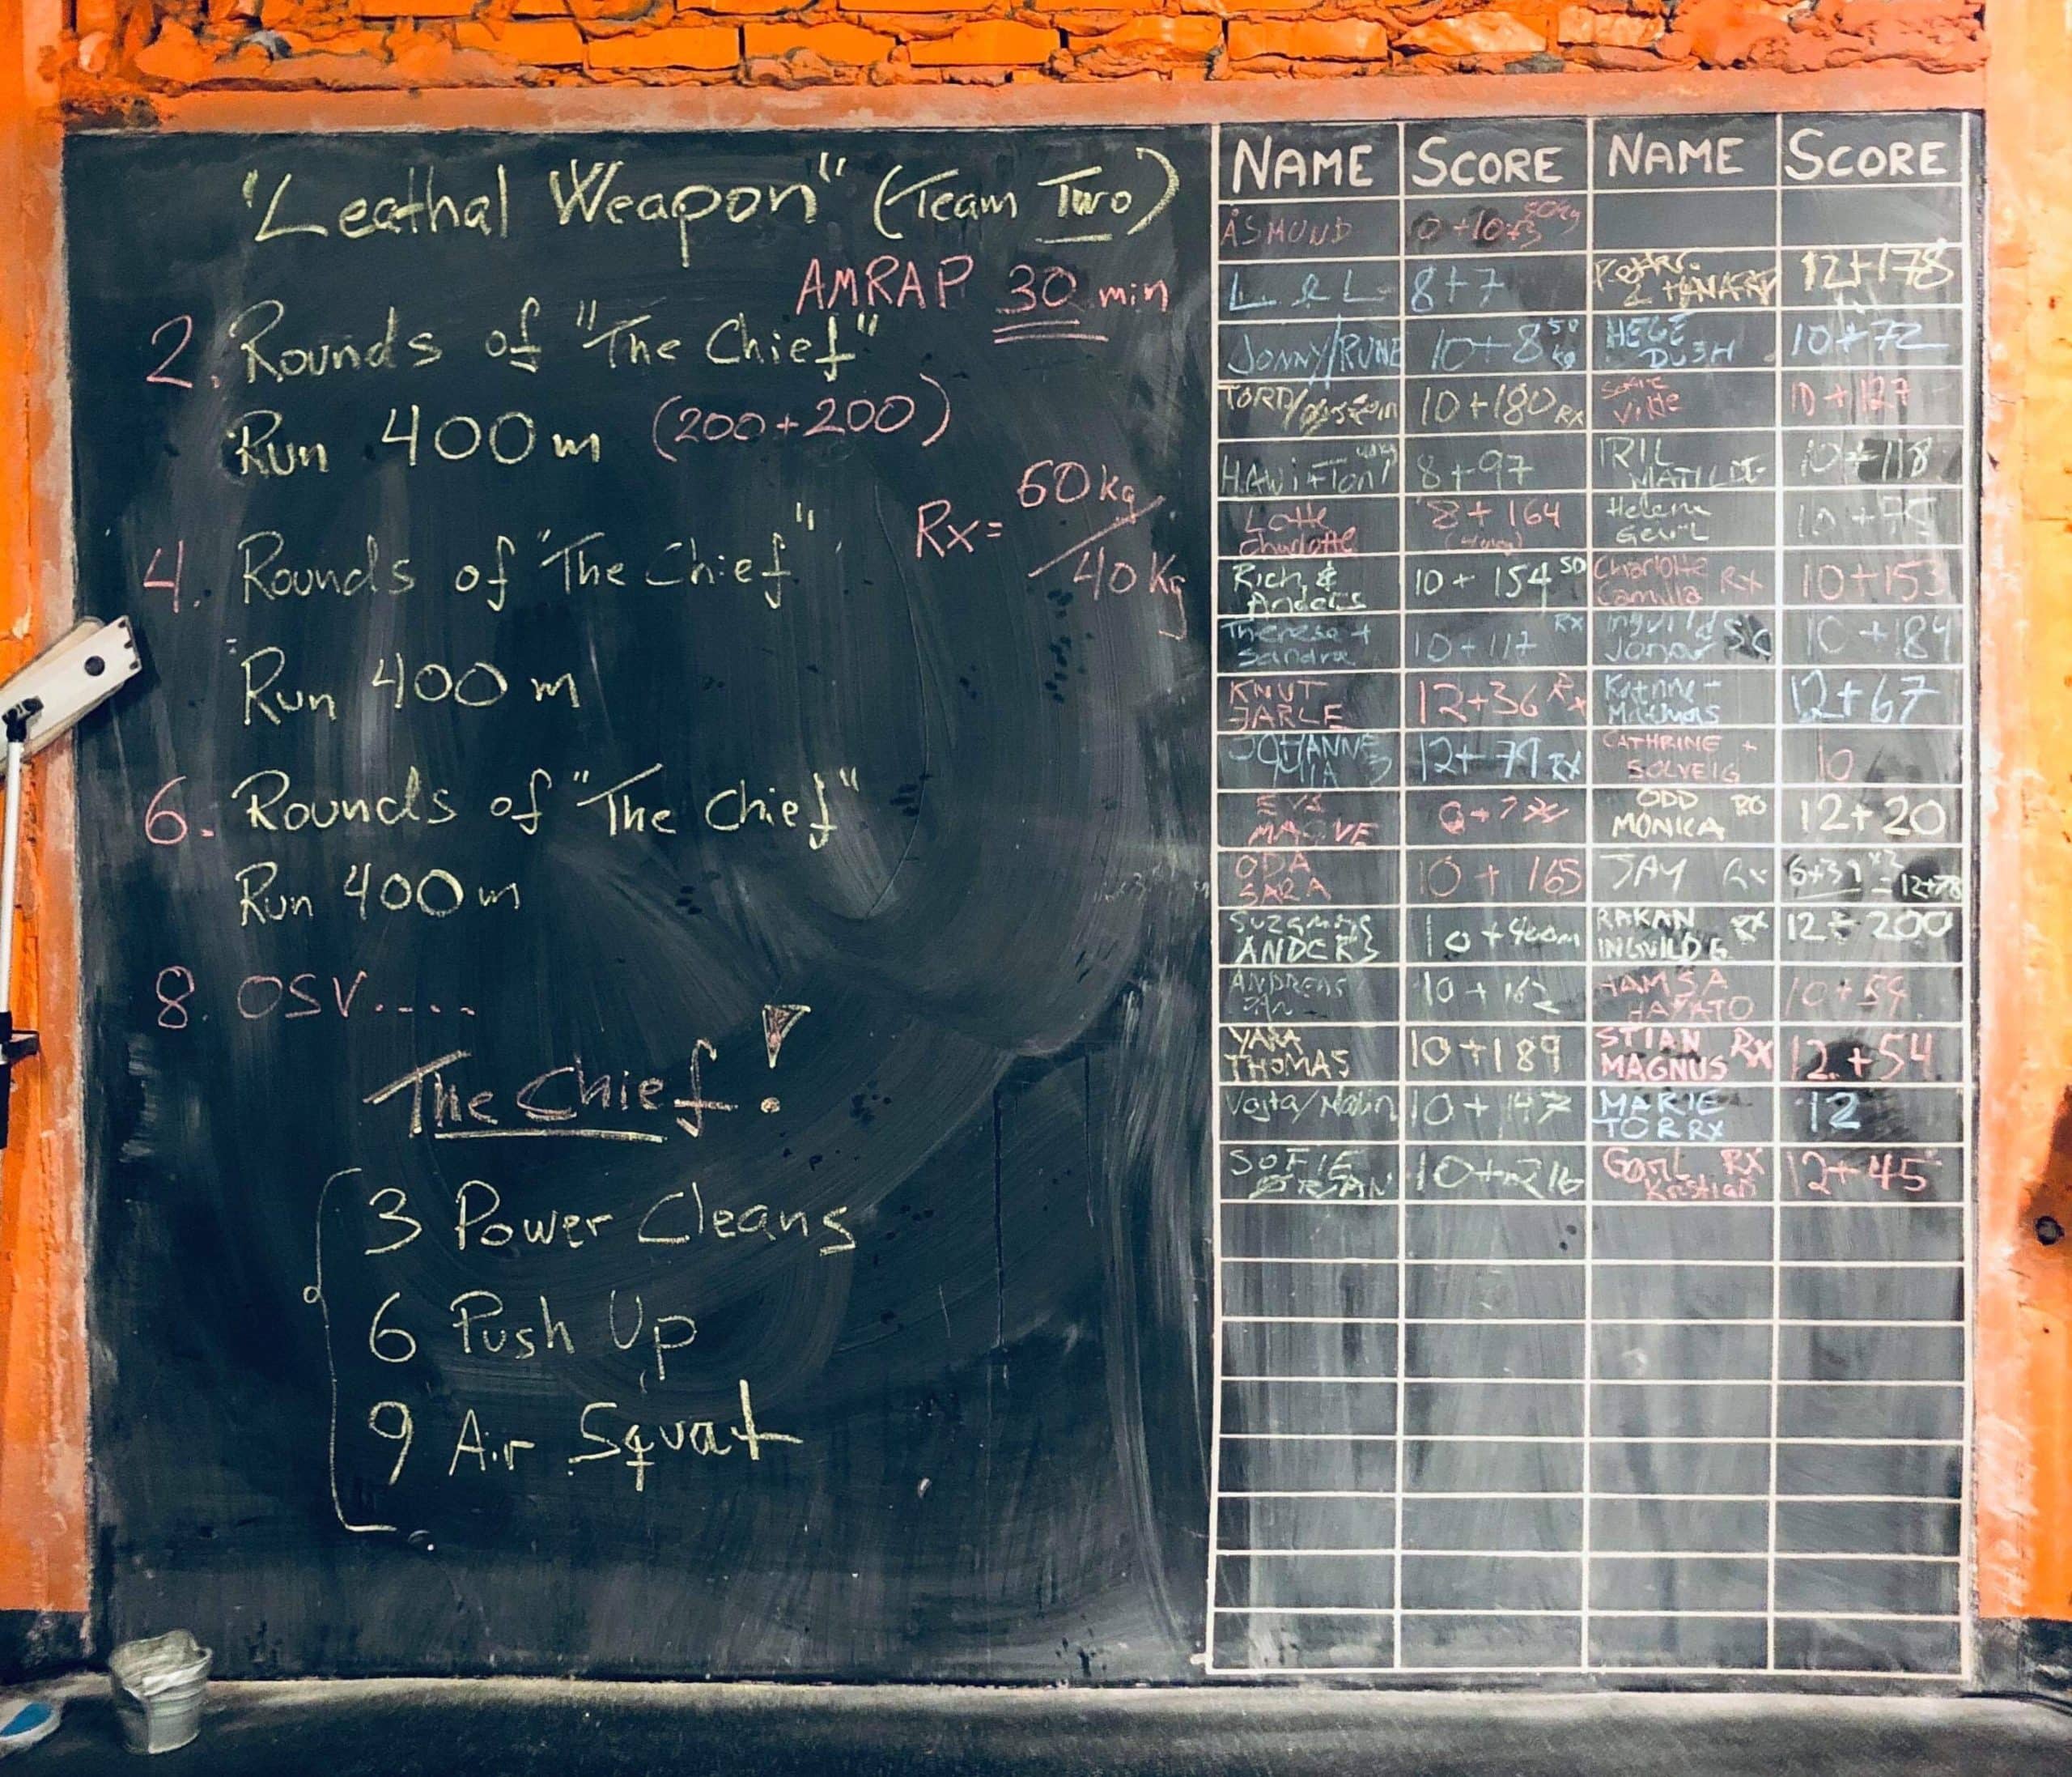 "Leathal Weapon" (Team Two)
AMRAP 30 min
2. Rounds of "The Chief"
Run 400m (200+200)
Rx= 60kg/40kg
4. Rounds of "The Chief"
Run 400m
6. Rounds of "The Chief"
Run 400m
8. OSV....
The Chief!
3 Power Cleans
6 Push Up
9 Air Squat
NAME SCORE NAME SCORE
ÅSMUND
L & L 8+7 12+178
JONNY/RUNE 10+8 50 kg HEGE 10+72
TORD/ 10+180 RX 10+127
8+97 MATILDE 10+118
Lotte Charlotte 8+164 Helene
Rich & Anders 10+154 50 Charlotte Camilla Rx 10+153
Therese + Sandra 10+117 RX Ingvild 10+184
KNUT JARLE 12+36 Rx 12+67
JOHANNE MIA 12+79 RX CATHRINE + SOLVEIG 10
ODD MONIKA 12+20
ODA SARA 10+165 JAY Rx 6+39 x2 = 12+78
ANDERS 10+400m RAKAN INGVILD G RX 12+200
ANDREAS 10+162 HAMSA HAYATO 10+59
YARA THOMAS 10+189 STIAN MAGNUS Rx 12+54
Vojta/Malin 10+147 MARIE TOR RX 12
SOFIE 10+216 Kristian RX 12+45